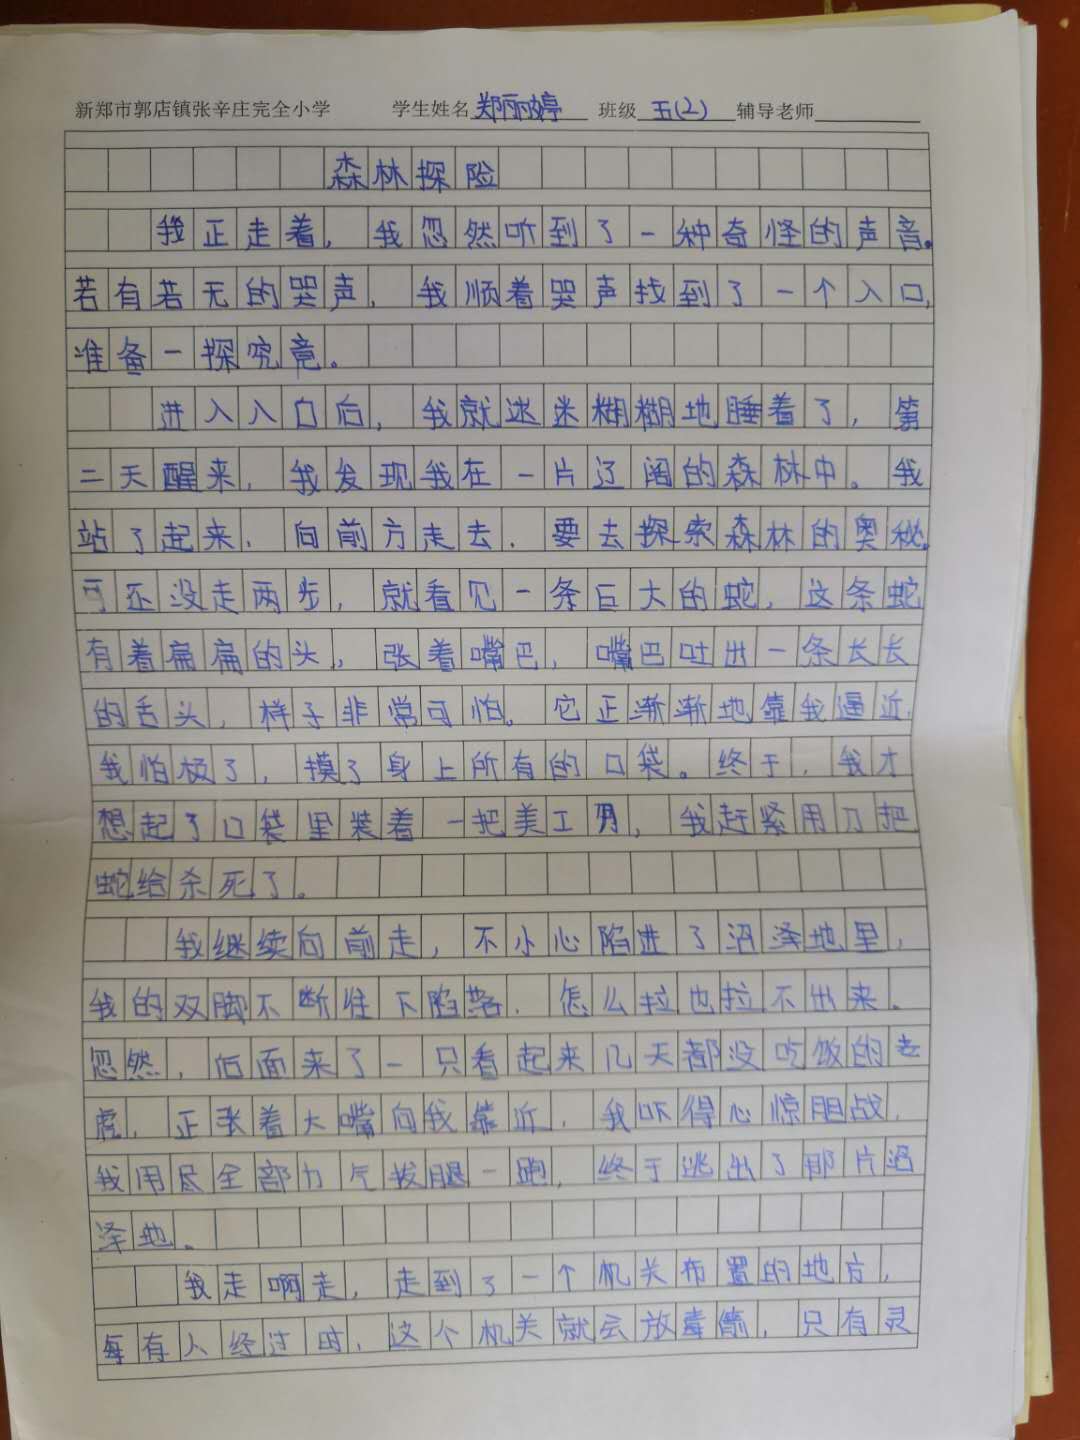 新郑市郭店镇张辛庄完全小学 学生姓名郑丽婷 班级五(2) 辅导老师
森林探险
我正走着，我忽然听到了一种奇怪的声音。
若有若无的哭声，我顺着哭声找到了一个入口，
准备一探究竟。
进入入口后，我就迷迷糊糊地睡着了，第
二天醒来，我发现我在一片辽阔的森林中。我
站了起来，向前方走去，要去探索森林的奥秘，
可还没走两步，就看见一条巨大的蛇，这条蛇
有着扁扁的头，张着嘴巴，嘴巴吐出一条长长
的舌头，样子非常可怕。它正渐渐地靠我逼近，
我怕极了，摸了身上所有的口袋。终于，我才
想起了口袋里装着一把美工刀，我赶紧用刀把
蛇给杀死了。
我继续向前走，不小心陷进了沼泽地里，
我的双脚不断往下陷落，怎么拉也拉不出来。
忽然，后面来了一只看起来几天都没吃饭的老
虎，正张着大嘴向我靠近，我吓得心惊胆战，
我用尽全部力气拔腿一跑，终于逃出了那片沼
泽地。
我走啊走，走到了一个机关布置的地方，
每有人经过时，这个机关就会放毒箭，只有灵